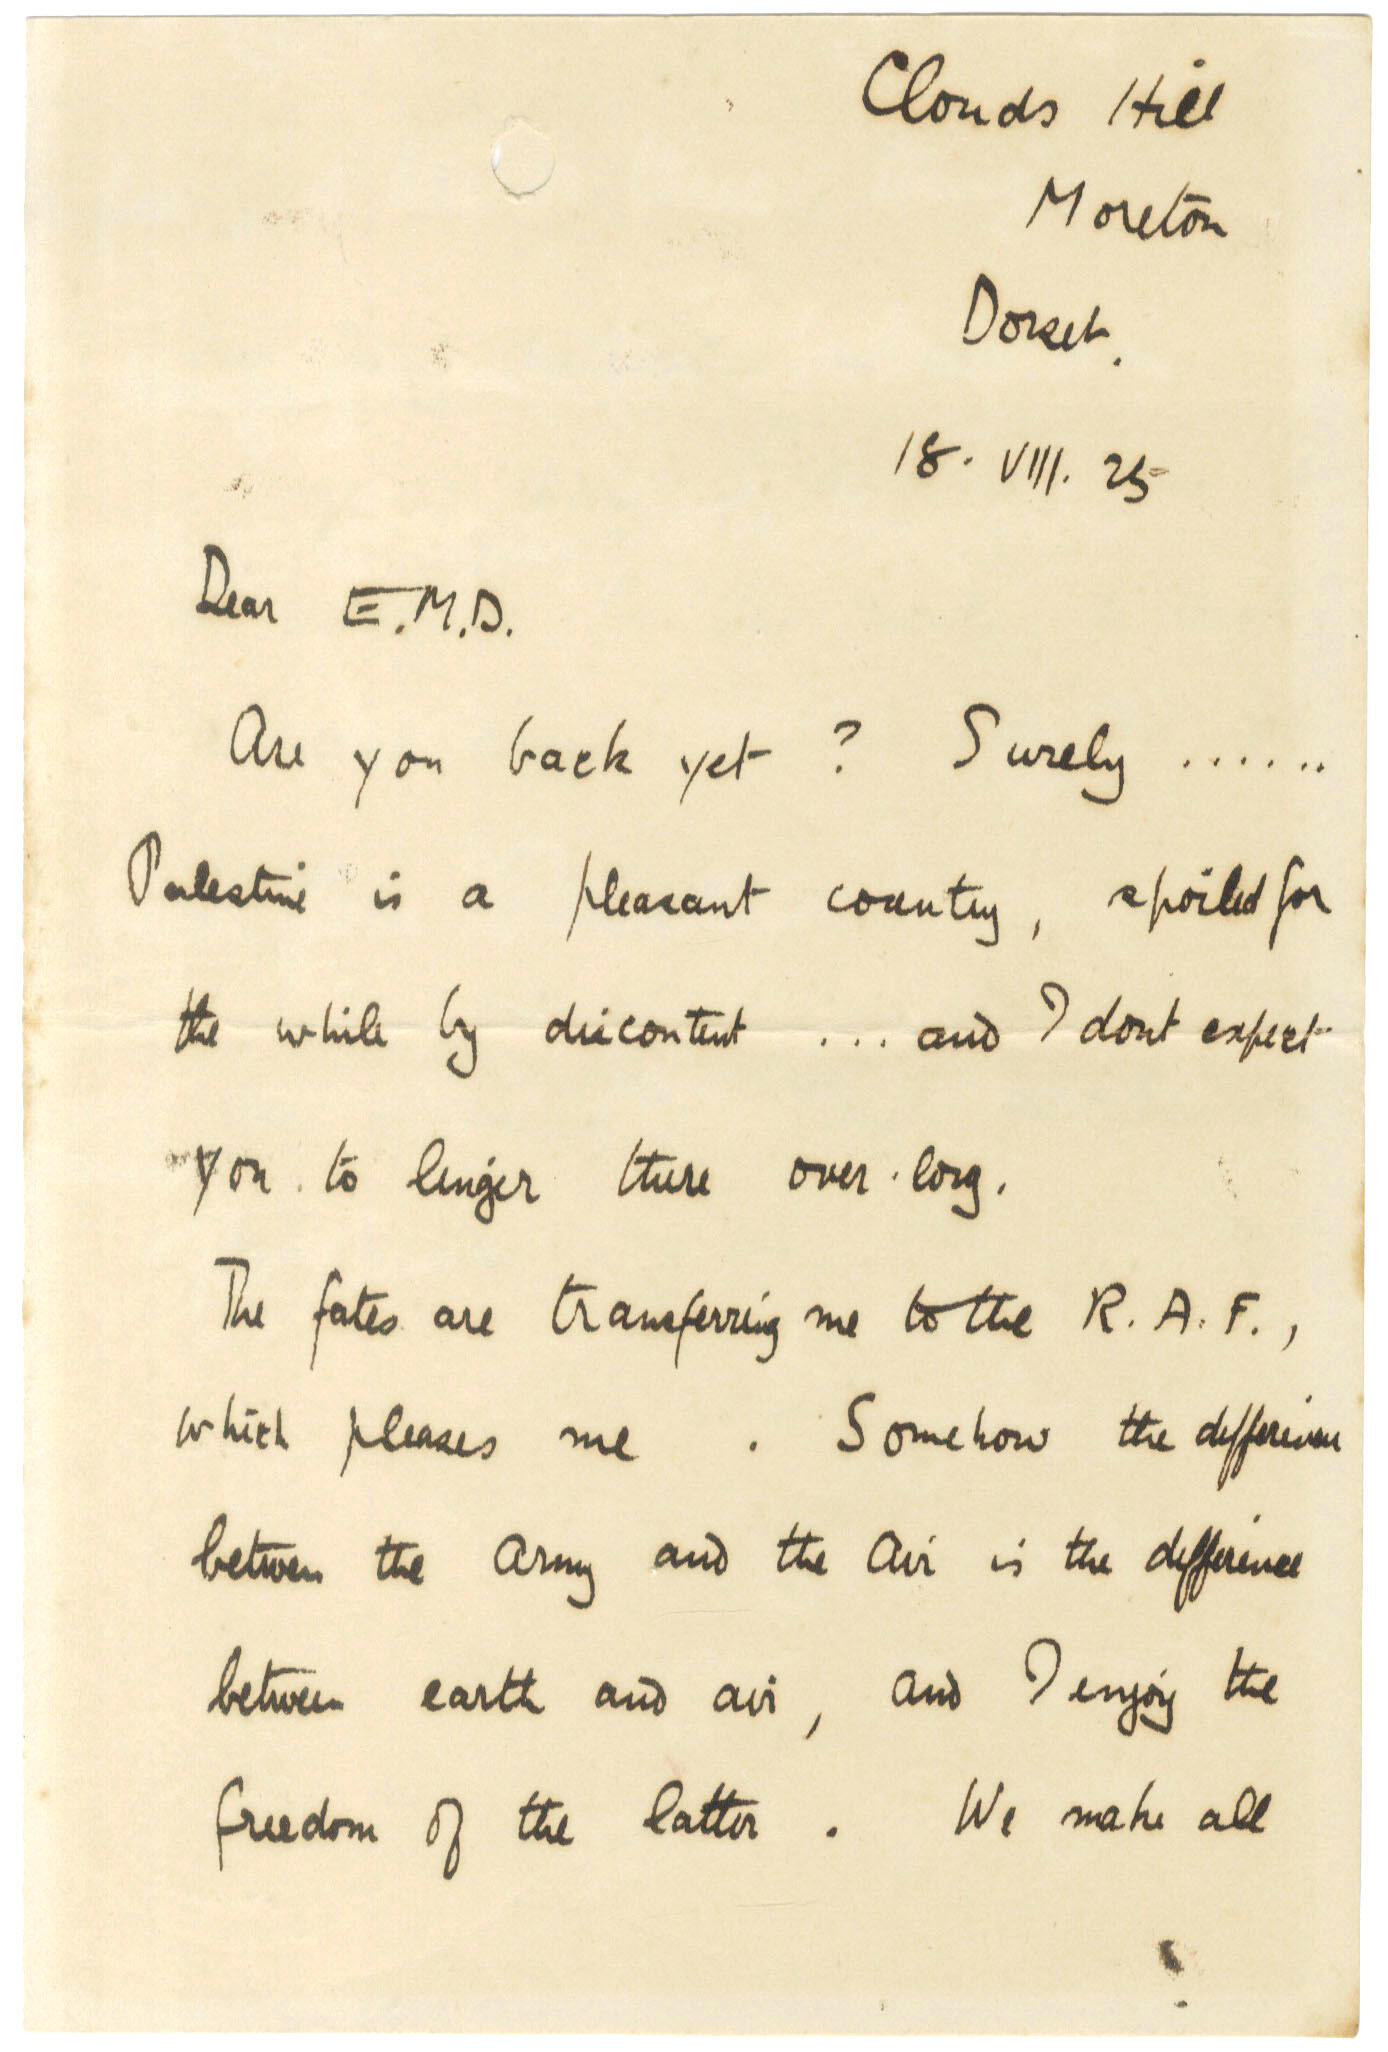 Clouds Hill
Moreton
Dorset.
18. VIII. 25
Dear E.M.D.
Are you back yet ? Surely ......
Palestine is a pleasant country, spoiled for
the while by discontent ... and I dont expect
you to linger there over-long.
The fates are transferring me to the R.A.F.,
which pleases me . Somehow the difference
between the Army and the Air is the difference
between earth and air, and I enjoy the
freedom of the latter . We make all